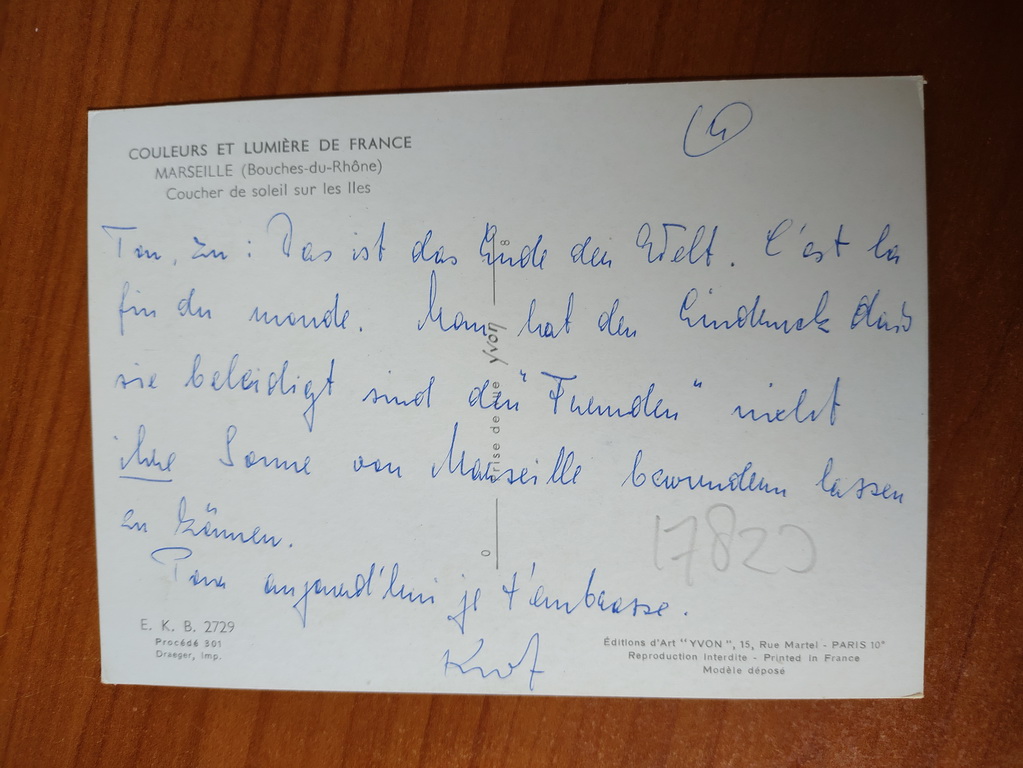 COULEURS ET LUMIÈRE DE FRANCE
MARSEILLE (Bouches-du-Rhône)
Coucher de soleil sur les Iles
4
Das ist das Ende der Welt. C'est la
fin du monde. Man hat den Eindruck dass
sie beleidigt sind den "Fremden" nicht
ihre Sonne von Marseille bewundern lassen
zu können.
Pour aujourd'hui je t'embrasse.
17820
E. K. B. 2729
Procédé 301
Draeger, imp.
Éditions d'Art "YVON", 15, Rue Martel - PARIS 10e
Reproduction interdite - Printed in France
Modèle déposé
yvon